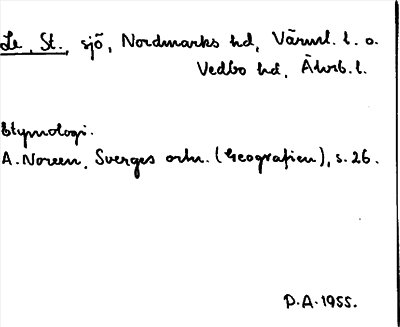 Le, St., sjö, Nordmarks hd, Värml. l. o.
Vedbo hd, Älvsb. l.
Etymologi.
A. Noreen, Sverges ortn. (Geografien), s. 26.
P.A. 1955.